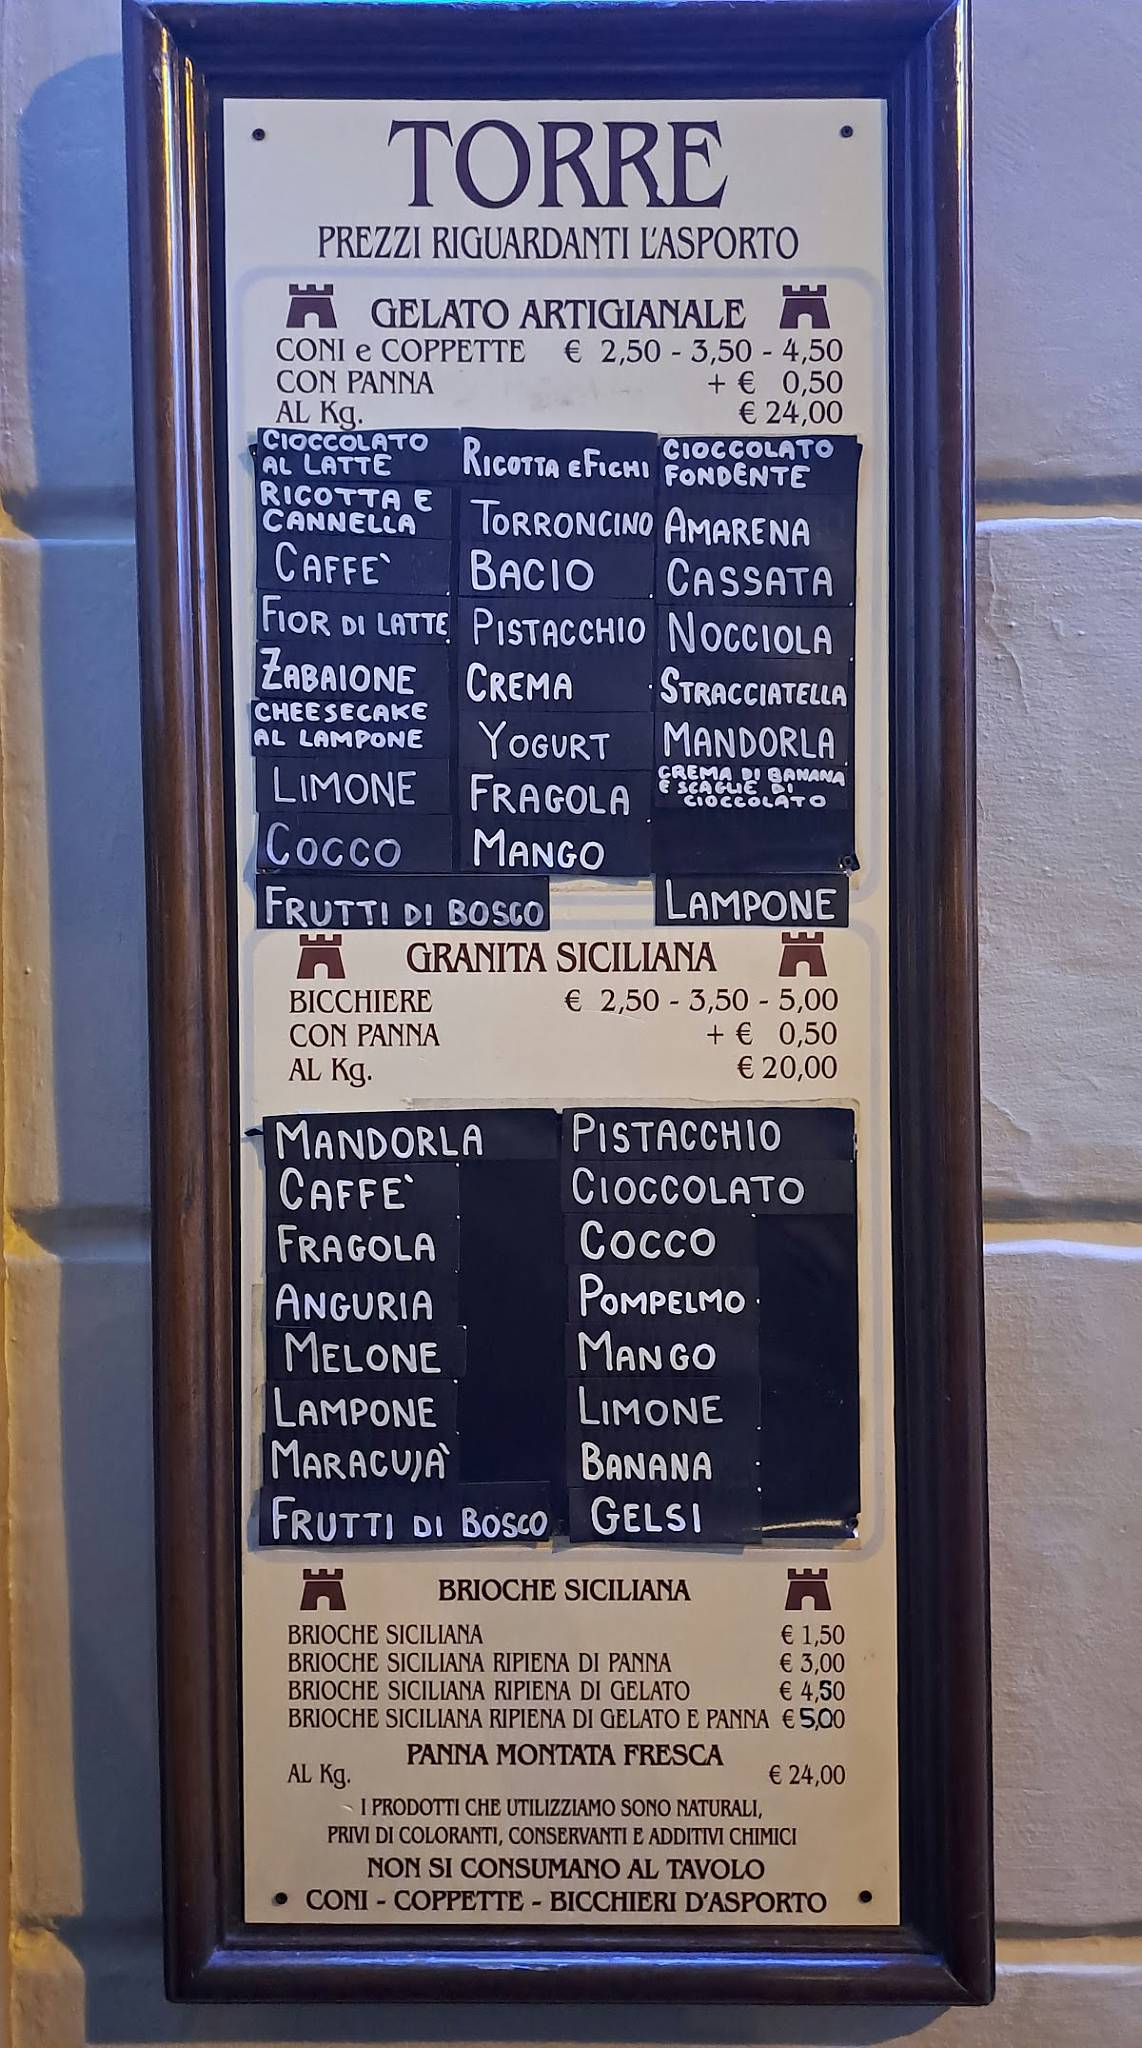 TORRE
PREZZI RIGUARDANTI L'ASPORTO
GELATO ARTIGIANALE
CONI e COPPETTE € 2,50 - 3,50 - 4,50
CON PANNA + € 0,50
AL Kg. € 24,00
CIOCCOLATO
AL LATTE
RICOTTA E
CANNELLA
CAFFE`
FIOR DI LATTE
ZABAIONE
CHEESECAKE
AL LAMPONE
LIMONE
COCCO
FRUTTI DI BOSCO
RICOTTA E FICHI
TORRONCINO
BACIO
PISTACCHIO
CREMA
YOGURT
FRAGOLA
MANGO
CIOCCOLATO
FONDENTE
AMARENA
CASSATA
NOCCIOLA
STRACCIATELLA
MANDORLA
CREMA DI BANANA
E SCAGLIE DI
CIOCCOLATO
LAMPONE
GRANITA SICILIANA
BICCHIERE € 2,50 - 3,50 - 5,00
CON PANNA + € 0,50
AL Kg. € 20,00
MANDORLA
CAFFE`
FRAGOLA
ANGURIA
MELONE
LAMPONE
MARACUJA`
FRUTTI DI BOSCO
PISTACCHIO
CIOCCOLATO
COCCO
POMPELMO
MANGO
LIMONE
BANANA
GELSI
BRIOCHE SICILIANA
BRIOCHE SICILIANA € 1,50
BRIOCHE SICILIANA RIPIENA DI PANNA € 3,00
BRIOCHE SICILIANA RIPIENA DI GELATO € 4,50
BRIOCHE SICILIANA RIPIENA DI GELATO E PANNA € 5,00
PANNA MONTATA FRESCA
AL Kg. € 24,00
I PRODOTTI CHE UTILIZZIAMO SONO NATURALI,
PRIVI DI COLORANTI, CONSERVANTI E ADDITIVI CHIMICI
NON SI CONSUMANO AL TAVOLO
CONI - COPPETTE - BICCHIERI D'ASPORTO